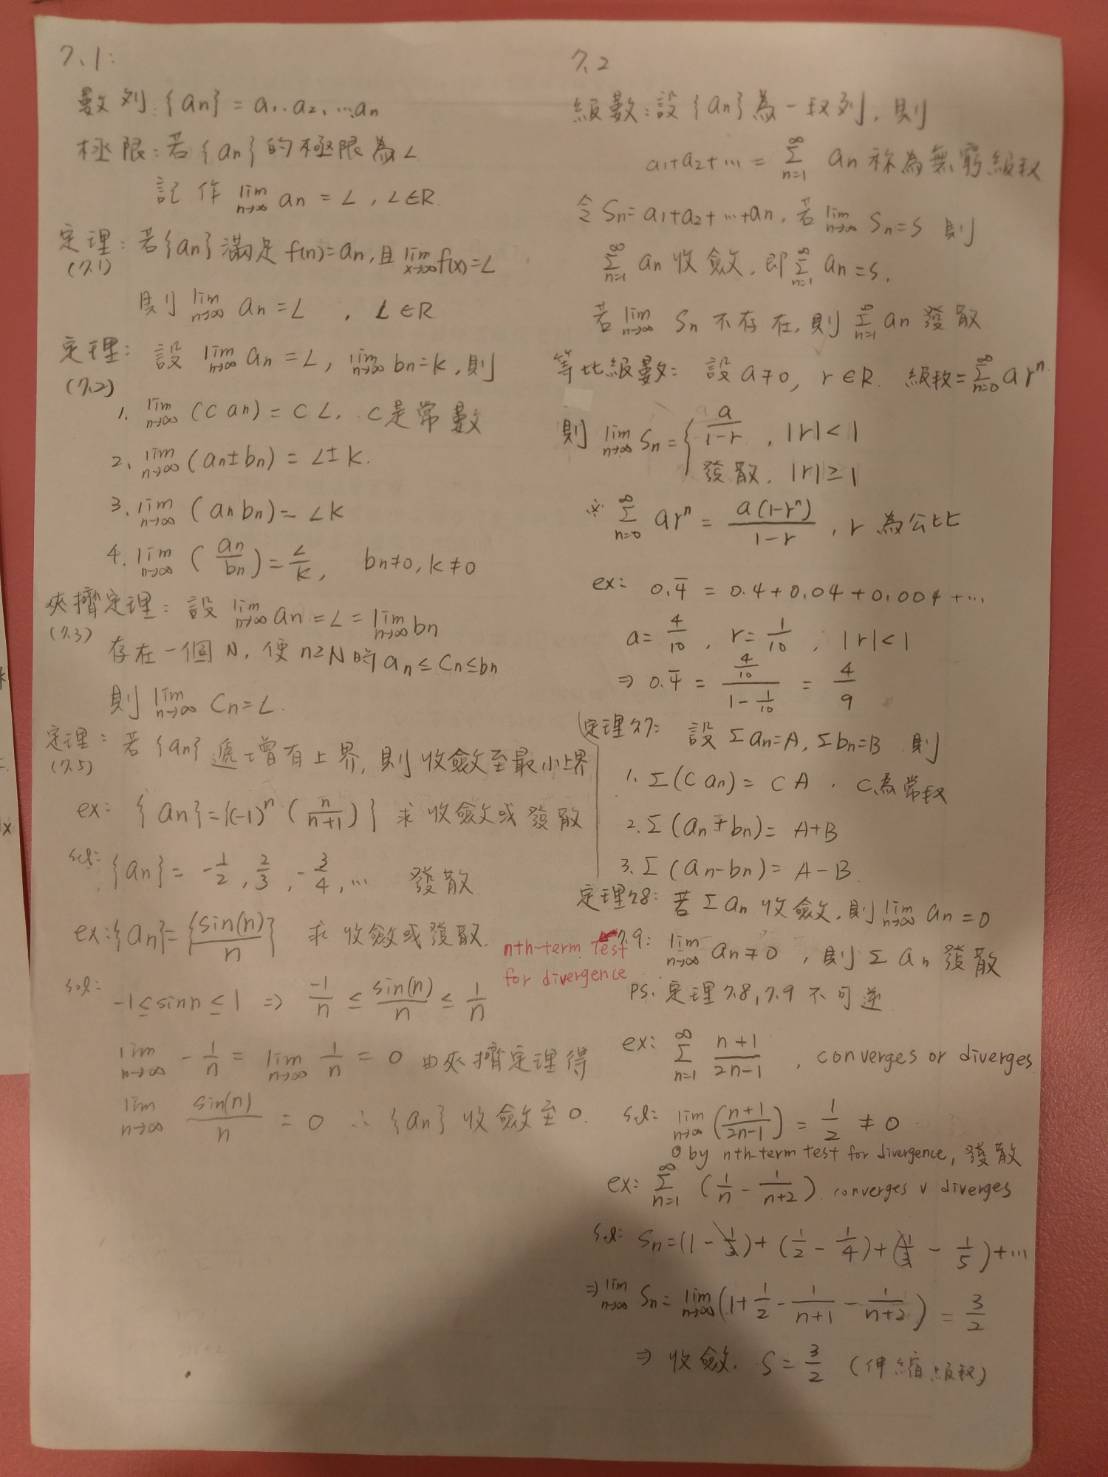 7.1:
數列:{an} = a1, a2, …an
極限:若{an}的極限為L
記作 lim n→∞ an = L , L∈R
定理:若{an}滿足f(n)=an,且 lim x→∞ f(x)=L
(7.1)
則 lim n→∞ an = L , L∈R
定理: 設 lim n→∞ an = L, lim n→∞ bn=K,則
(7.2)
1. lim n→∞ (c an) = c L, c是常數
2. lim n→∞ (an±bn) = L±K.
3. lim n→∞ (an bn)=LK
4. lim n→∞ (an/bn)=L/K, bn≠0, K≠0
夾擠定理: 設 lim n→∞ an=L= lim n→∞ bn
(7.3)
存在一個N, 使n≥N時 an≤Cn≤bn
則 lim n→∞ Cn=L.
定理: 若{an}遞增有上界,則收斂至最小上界
(7.5)
ex: {an}={(-1)^n (n/(n+1))} 求收斂或發散
sol: {an}= -1/2, 2/3, -3/4, … 發散
ex:{an}={sin(n)/n} 求收斂或發散.
sol: -1≤sinn≤1 ⇒ -1/n ≤ sin(n)/n ≤ 1/n
lim n→∞ -1/n = lim n→∞ 1/n = 0 由夾擠定理得
lim n→∞ sin(n)/n = 0 ∴ {an} 收斂至0.
7.2
級數:設{an}為一数列, 則
a1+a2+… = Σ n=1 ∞ an 称為無窮級数
令Sn=a1+a2+…+an, 若 lim n→∞ Sn=S 則
Σ n=1 ∞ an 收斂, 即 Σ n=1 ∞ an=S.
若 lim n→∞ Sn 不存在,則 Σ n=1 ∞ an 發散
等比級數: 設a≠0, r∈R. 級数=Σ n=0 ∞ ar^n
則 lim n→∞ Sn={ a/(1-r) , |r|<1
發散, |r|≥1
※ Σ n=0 ∞ ar^n = a(1-r^n)/(1-r) , r 為公比
ex: 0.4̄ = 0.4+0.04+0.004+…
a=4/10 , r=1/10 , |r|<1
⇒ 0.4̄ = (4/10)/(1-1/10) = 4/9
定理7.7: 設Σan=A, Σbn=B 則
1. Σ(c an)= cA , c為常数
2. Σ(an+bn)= A+B
3. Σ(an-bn)= A-B
定理7.8: 若Σan 收斂,則 lim n→∞ an=0
nth-term test
for divergence
7.9: lim n→∞ an≠0 , 則Σ an 發散
PS. 定理7.8, 7.9 不可逆
ex: Σ n=1 ∞ (n+1)/(2n-1) , converges or diverges
sol: lim n→∞ ((n+1)/(2n-1)) = 1/2 ≠ 0
by nth-term test for divergence, 發散
ex: Σ n=1 ∞ (1/n - 1/(n+2)) converges v diverges
sol: Sn=(1-1/3)+(1/2-1/4)+(1/3-1/5)+…
⇒ lim n→∞ Sn= lim n→∞ (1+1/2-1/(n+1)-1/(n+2)) = 3/2
⇒ 收斂, S=3/2 (伸縮級数)